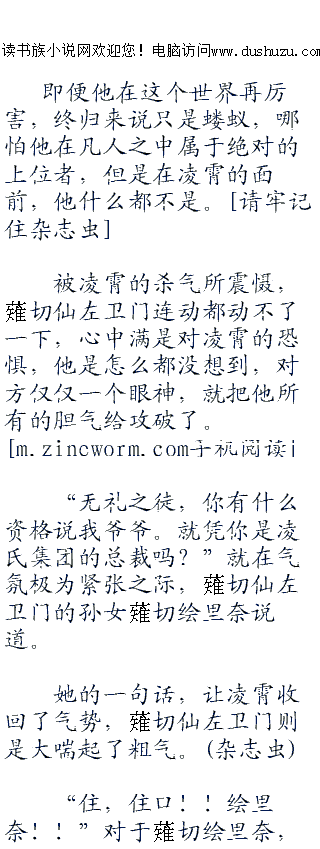 读书族小说网欢迎您！电脑访问www.dushuzu.com
即便他在这个世界再厉
害，终归来说只是蝼蚁，哪
怕他在凡人之中属于绝对的
上位者，但是在凌霄的面
前，他什么都不是。[请牢记
住杂志虫]
被凌霄的杀气所震慑，
薙切仙左卫门连动都动不了
一下，心中满是对凌霄的恐
惧，他是怎么都没想到，对
方仅仅一个眼神，就把他所
有的胆气给攻破了。
[m.zincworm.com手机阅读]
“无礼之徒，你有什么
资格说我爷爷。就凭你是凌
氏集团的总裁吗？”就在气
氛极为紧张之际，薙切仙左
卫门的孙女薙切绘里奈说
道。
她的一句话，让凌霄收
回了气势，薙切仙左卫门则
是大喘起了粗气。(杂志虫)
“住，住口！！绘里
奈！！”对于薙切绘里奈，